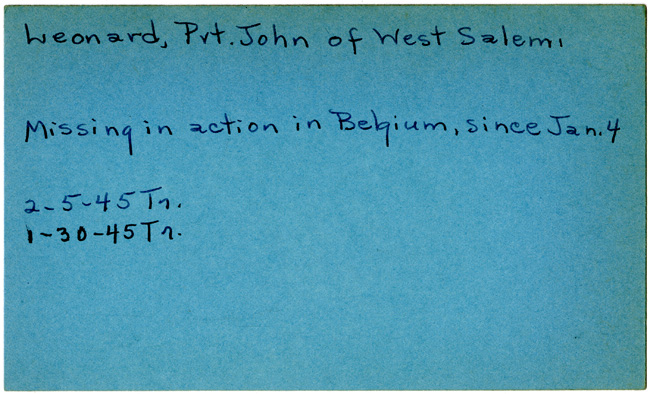 Leonard, Pvt. John of West Salem.
Missing in action in Belgium, since Jan. 4
2-5-45 Tr.
1-30-45 Tr.